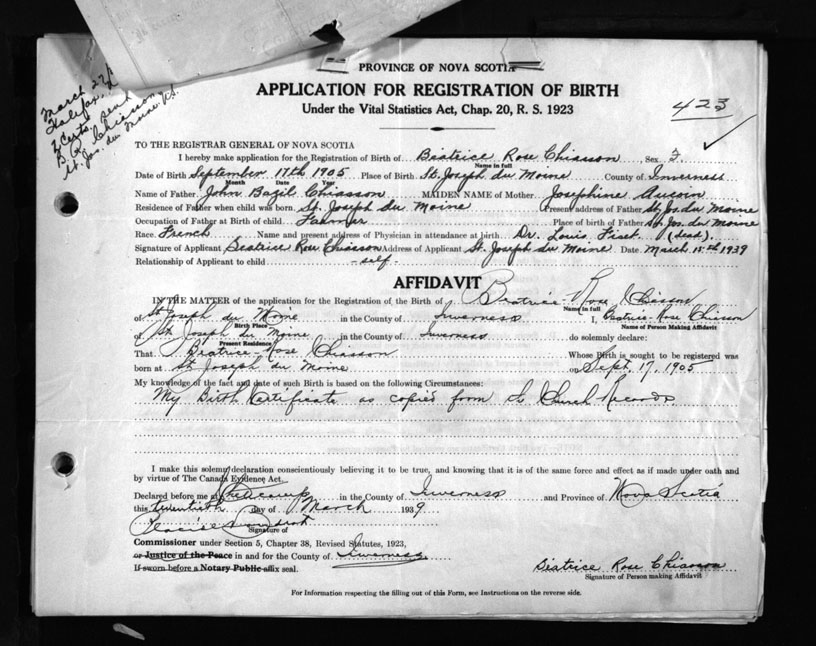 March 27/
Halifax,
Certs. sent
B. R. Chiasson
St. Jos. du Moine N.S.
PROVINCE OF NOVA SCOTIA
APPLICATION FOR REGISTRATION OF BIRTH
Under the Vital Statistics Act, Chap. 20, R. S. 1923
423
TO THE REGISTRAR GENERAL OF NOVA SCOTIA
I hereby make application for the Registration of Birth of Beatrice Rose Chiasson Sex F.
Name in full
Date of Birth September 17th 1905 Place of Birth St. Joseph du Moine County of Inverness
Month Date Year
Name of Father John Bazil Chiasson MAIDEN NAME of Mother Josephine Aucoin
Residence of Father when child was born St. Joseph du Moine Present address of Father St. Jos. du Moine
Occupation of Father at Birth of child Farmer Place of birth of Father St. Jos. du Moine
Race French Name and present address of Physician in attendance at birth Dr. Louis Fiset (dead).
Signature of Applicant Beatrice Rose Chiasson Address of Applicant St. Joseph du Moine Date March 15th 1939
Relationship of Applicant to child -self-
AFFIDAVIT
IN THE MATTER of the application for the Registration of the Birth of Beatrice Rose Chiasson
Name in full
of St Joseph du Moine in the County of Inverness I, Beatrice Rose Chiasson
Birth Place
Name of Person Making Affidavit
of St Joseph du Moine in the County of Inverness do solemnly declare:
Present Residence
That Beatrice Rose Chiasson Whose Birth is sought to be registered was
born at St Joseph du Moine on Sept. 17, 1905
My knowledge of the fact and date of such Birth is based on the following Circumstances:
My Birth Certificate as copied form the Church Records
I make this solemn declaration conscientiously believing it to be true, and knowing that it is of the same force and effect as if made under oath and
by virtue of The Canada Evidence Act.
Declared before me at Cheticamp in the County of Inverness and Province of Nova Scotia
this twentieth day of March 1939
Signature of
Commissioner under Section 5, Chapter 38, Revised Statutes, 1923,
or Justice of the Peace in and for the County of Inverness
If sworn before a Notary Public affix seal.
Beatrice Rose Chiasson
Signature of Person making Affidavit
For Information respecting the filling out of this Form, see Instructions on the reverse side.